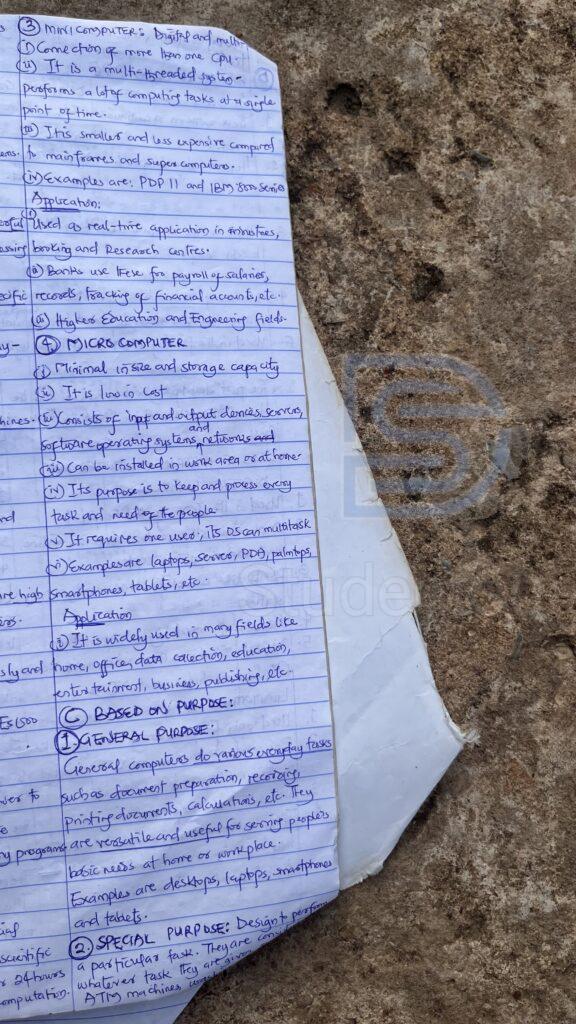 ③ MINI COMPUTER: Digital and multi-
i) Connection of more than one CPU.
ii) It is a multi-threaded system-
performs a lot of computing tasks at a single
point of time.
iii) It is smaller and less expensive compared
to mainframes and super computers.
iv) Examples are: PDP 11 and IBM 800 series
Application:
i) Used as real-time application in industries,
booking and Research centres.
ii) Banks use these for payroll of salaries,
records, tracking of financial accounts, etc.
iii) Higher Education and Engineering fields.
④ MICRO COMPUTER
i) Minimal in size and storage capacity
ii) It is low in cost
iii) Consists of input and output devices, servers,
software operating systems and networks and
iii) Can be installed in work area or at home.
iv) Its purpose is to keep and process every
task and need of the people
v) It requires one user, its OS can multitask
vi) Examples are laptops, server, PDA, palmtops,
smartphones, tablets, etc.
Application
i) It is widely used in many fields like
home, office, data collection, education,
entertainment, business, publishing, etc.
Ⓒ BASED ON PURPOSE:
1. GENERAL PURPOSE:
General computers do various everyday tasks
such as document preparation, recording,
printing documents, calculations, etc. They
are versatile and useful for serving people's
basic needs at home or workplace.
Examples are desktops, laptops, smartphones
and tablets.
2. SPECIAL PURPOSE: Design to perform
a particular task. They are
whatever task they are given
ATM machines,
machines.
are high
sly and
program
scientific
24 hours
computation.